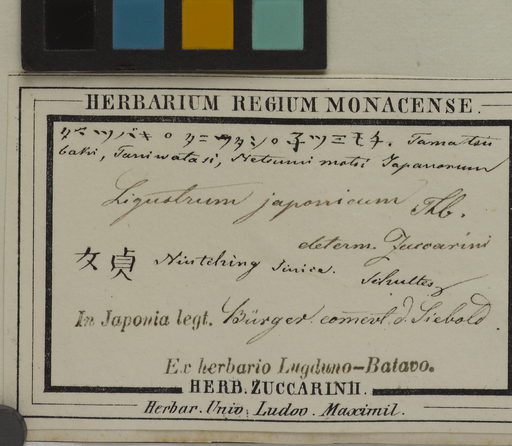 HERBARIUM REGIUM MONACENSE.
タマツバキ。タニワタシ。子ツミモチ. Tamatsu
baki, Taniwatasi, Netsumi motsi Japanorum
Ligustrum japonicum Thb.
determ. Zuccarini
女貞 Niutching Sinice. Schultes
In Japonia legt. Bürger comevt. d. Siebold.
Ex herbario Lugduno-Batavo.
HERB. ZUCCARINII.
Herbar. Univ. Ludov. Maximil.